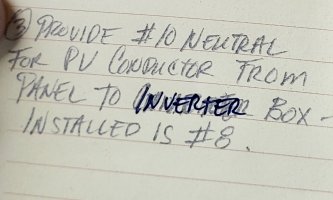 ③ PROVIDE #10 NEUTRAL
FOR PV CONDUCTOR FROM
PANEL TO INVERTER BOX -
INSTALLED IS #8.